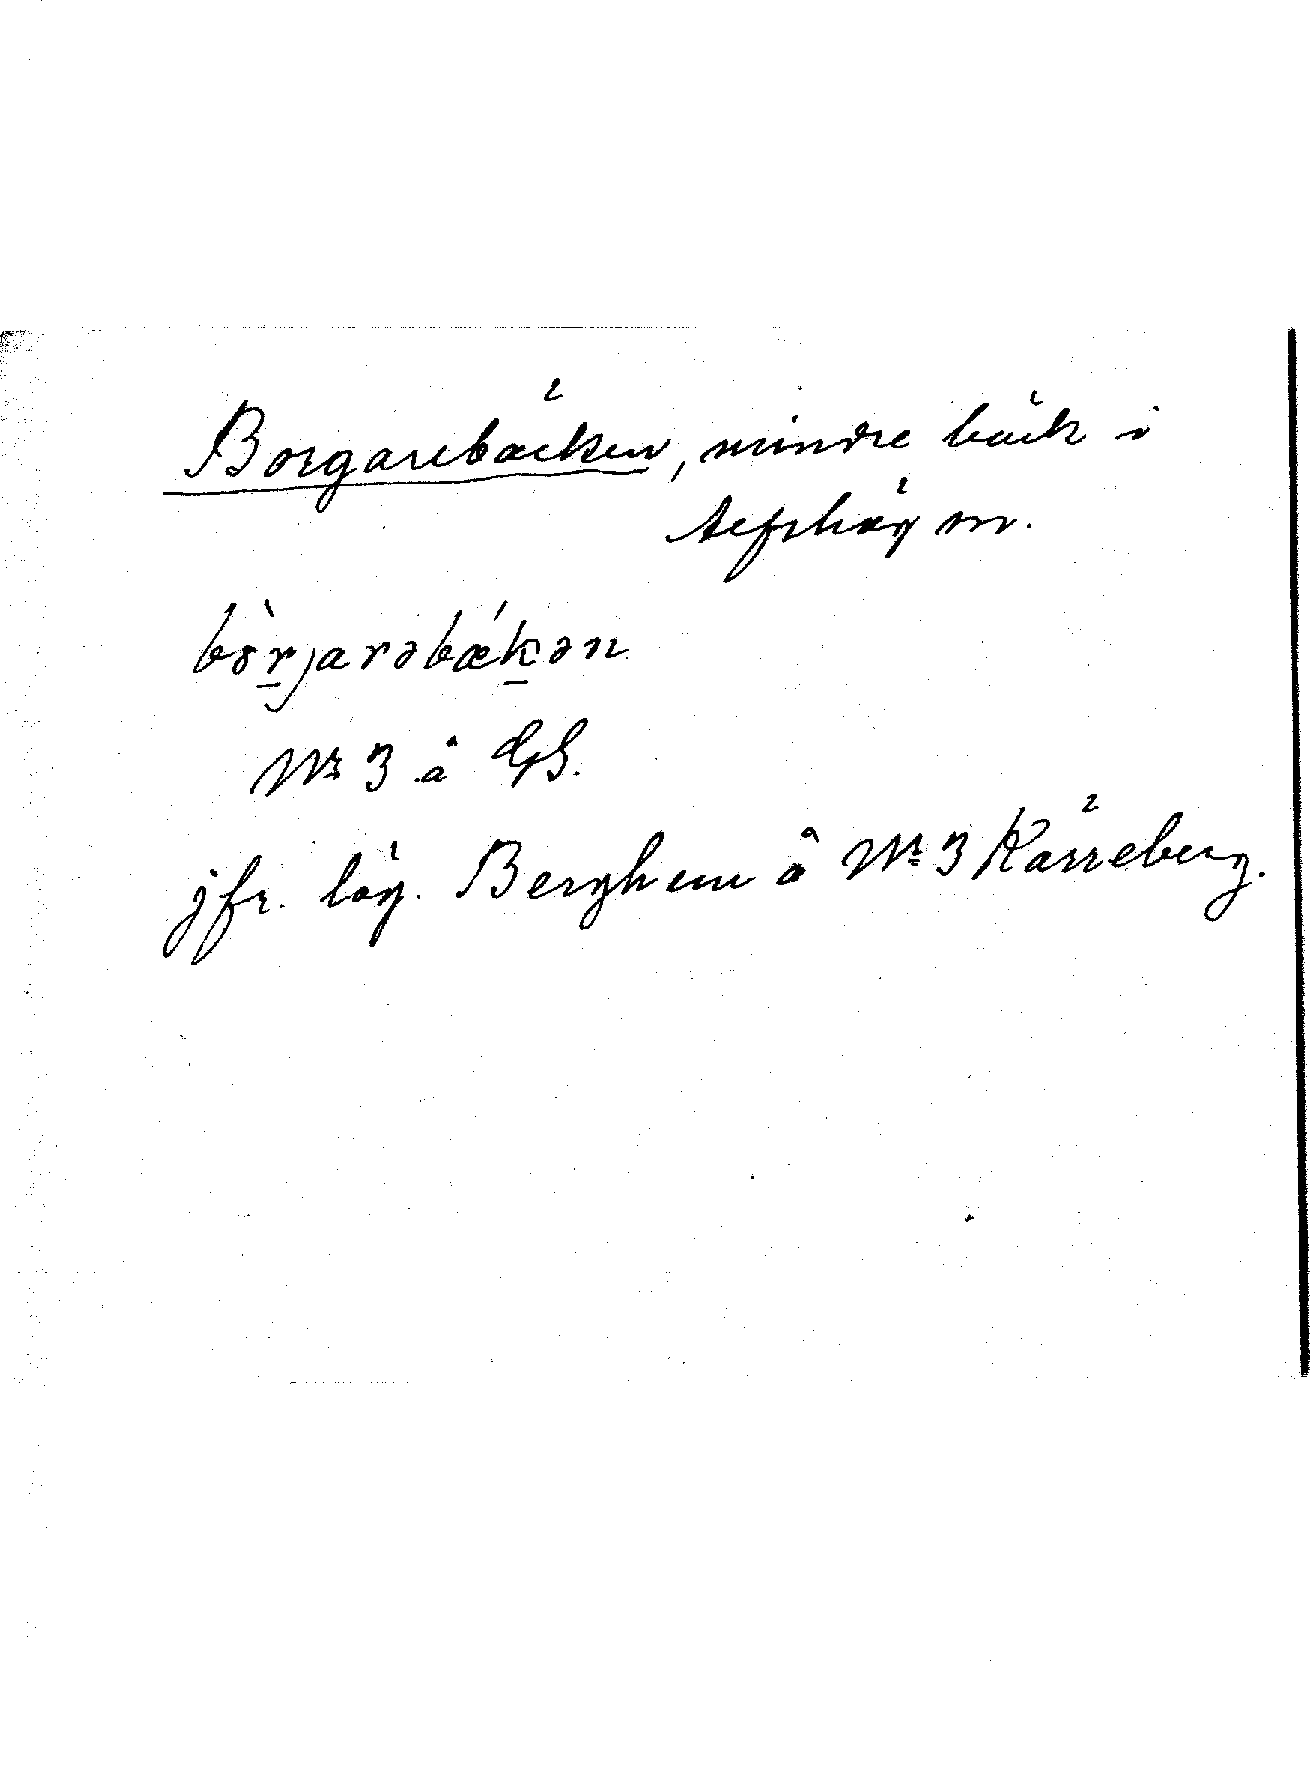 Borgarebäcken, mindre bäck i
m.
bòrjarəbǽkən
Nr 3 å GS.
jfr. läg. Berghem å Nr 3 Kärreberg.